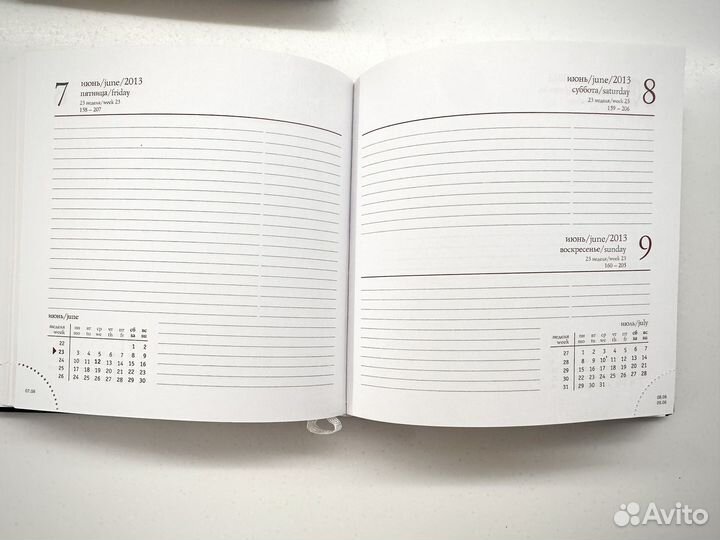 7
июнь/june/2013
пятница/friday
23 неделя/week 23
158 – 207
июнь/june
неделя пн вт ср чт пт сб вс
week mo tu we th fr sa su
22 1 2
23 3 4 5 6 7 8 9
24 10 11 12 13 14 15 16
25 17 18 19 20 21 22 23
26 24 25 26 27 28 29 30
07.06
июнь/june/2013
суббота/saturday
23 неделя/week 23
159 – 206
8
июнь/june/2013
воскресенье/sunday
23 неделя/week 23
160 – 205
9
июль/july
неделя пн вт ср чт пт сб вс
week mo tu we th fr sa su
27 1 2 3 4 5 6 7
28 8 9 10 11 12 13 14
29 15 16 17 18 19 20 21
30 22 23 24 25 26 27 28
31 29 30 31
08.06
09.06
Avito